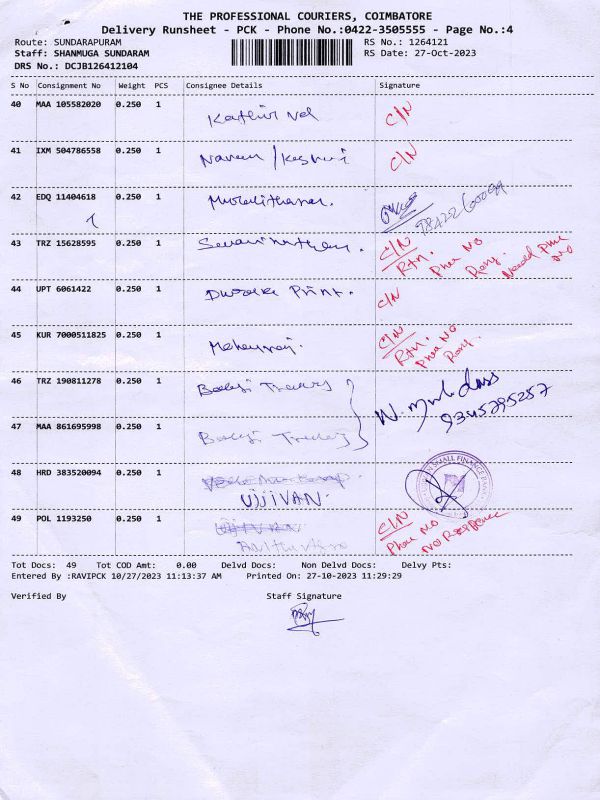 THE PROFESSIONAL COURIERS, COIMBATORE
Delivery Runsheet - PCK - Phone No.:0422-3505555 - Page No.:4
Route: SUNDARAPURAM RS No.: 1264121
Staff: SHANMUGA SUNDARAM RS Date: 27-Oct-2023
DRS No.: DCJB126412104
S No Consignment No Weight PCS Consignee Details Signature
40 MAA 105582020 0.250 1 Kathir Vel C/N
41 IXM 504786558 0.250 1 Naveen / C/N
42 EDQ 11404618 0.250 1
43 TRZ 15628595 0.250 1 C/N
Rtn. Phee No
44 UPT 6061422 0.250 1 Print. C/N
45 KUR 7000511825 0.250 1 C/N
Rtn. Phee No
46 TRZ 190811278 0.250 1
9345795257
47 MAA 861695998 0.250 1
48 HRD 383520094 0.250 1
UJJIVAN. SMALL FINANCE BANK
49 POL 1193250 0.250 1 C/N
Phee No
Tot Docs: 49 Tot COD Amt: 0.00 Delvd Docs: Non Delvd Docs: Delvy Pts:
Entered By :RAVIPCK 10/27/2023 11:13:37 AM Printed On: 27-10-2023 11:29:29
Verified By Staff Signature